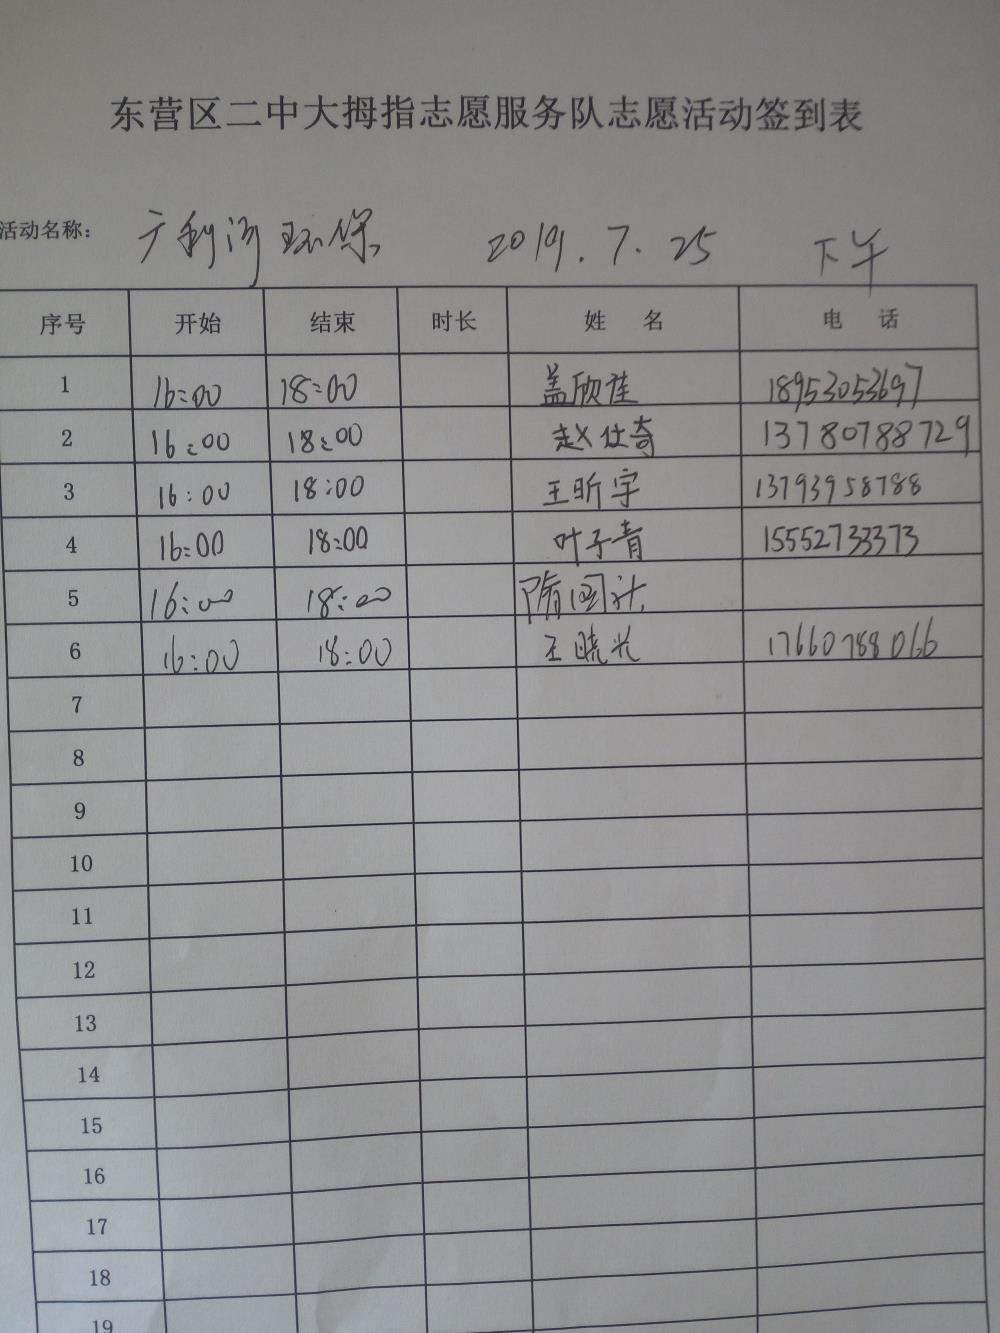 东营区二中大拇指志愿服务队志愿活动签到表
活动名称: 广利河环保 2019.7.25 下午
序号 开始 结束 时长 姓 名 电 话
1 16:00 18:00 盖欣佳 18953053697
2 16:00 18:00 赵仕奇 13780788729
3 16:00 18:00 王昕宇 13793958788
4 16:00 18:00 叶子青 15552733373
5 16:00 18:00
6 16:00 18:00 王晓光 17660788066
7
8
9
10
11
12
13
14
15
16
17
18
19